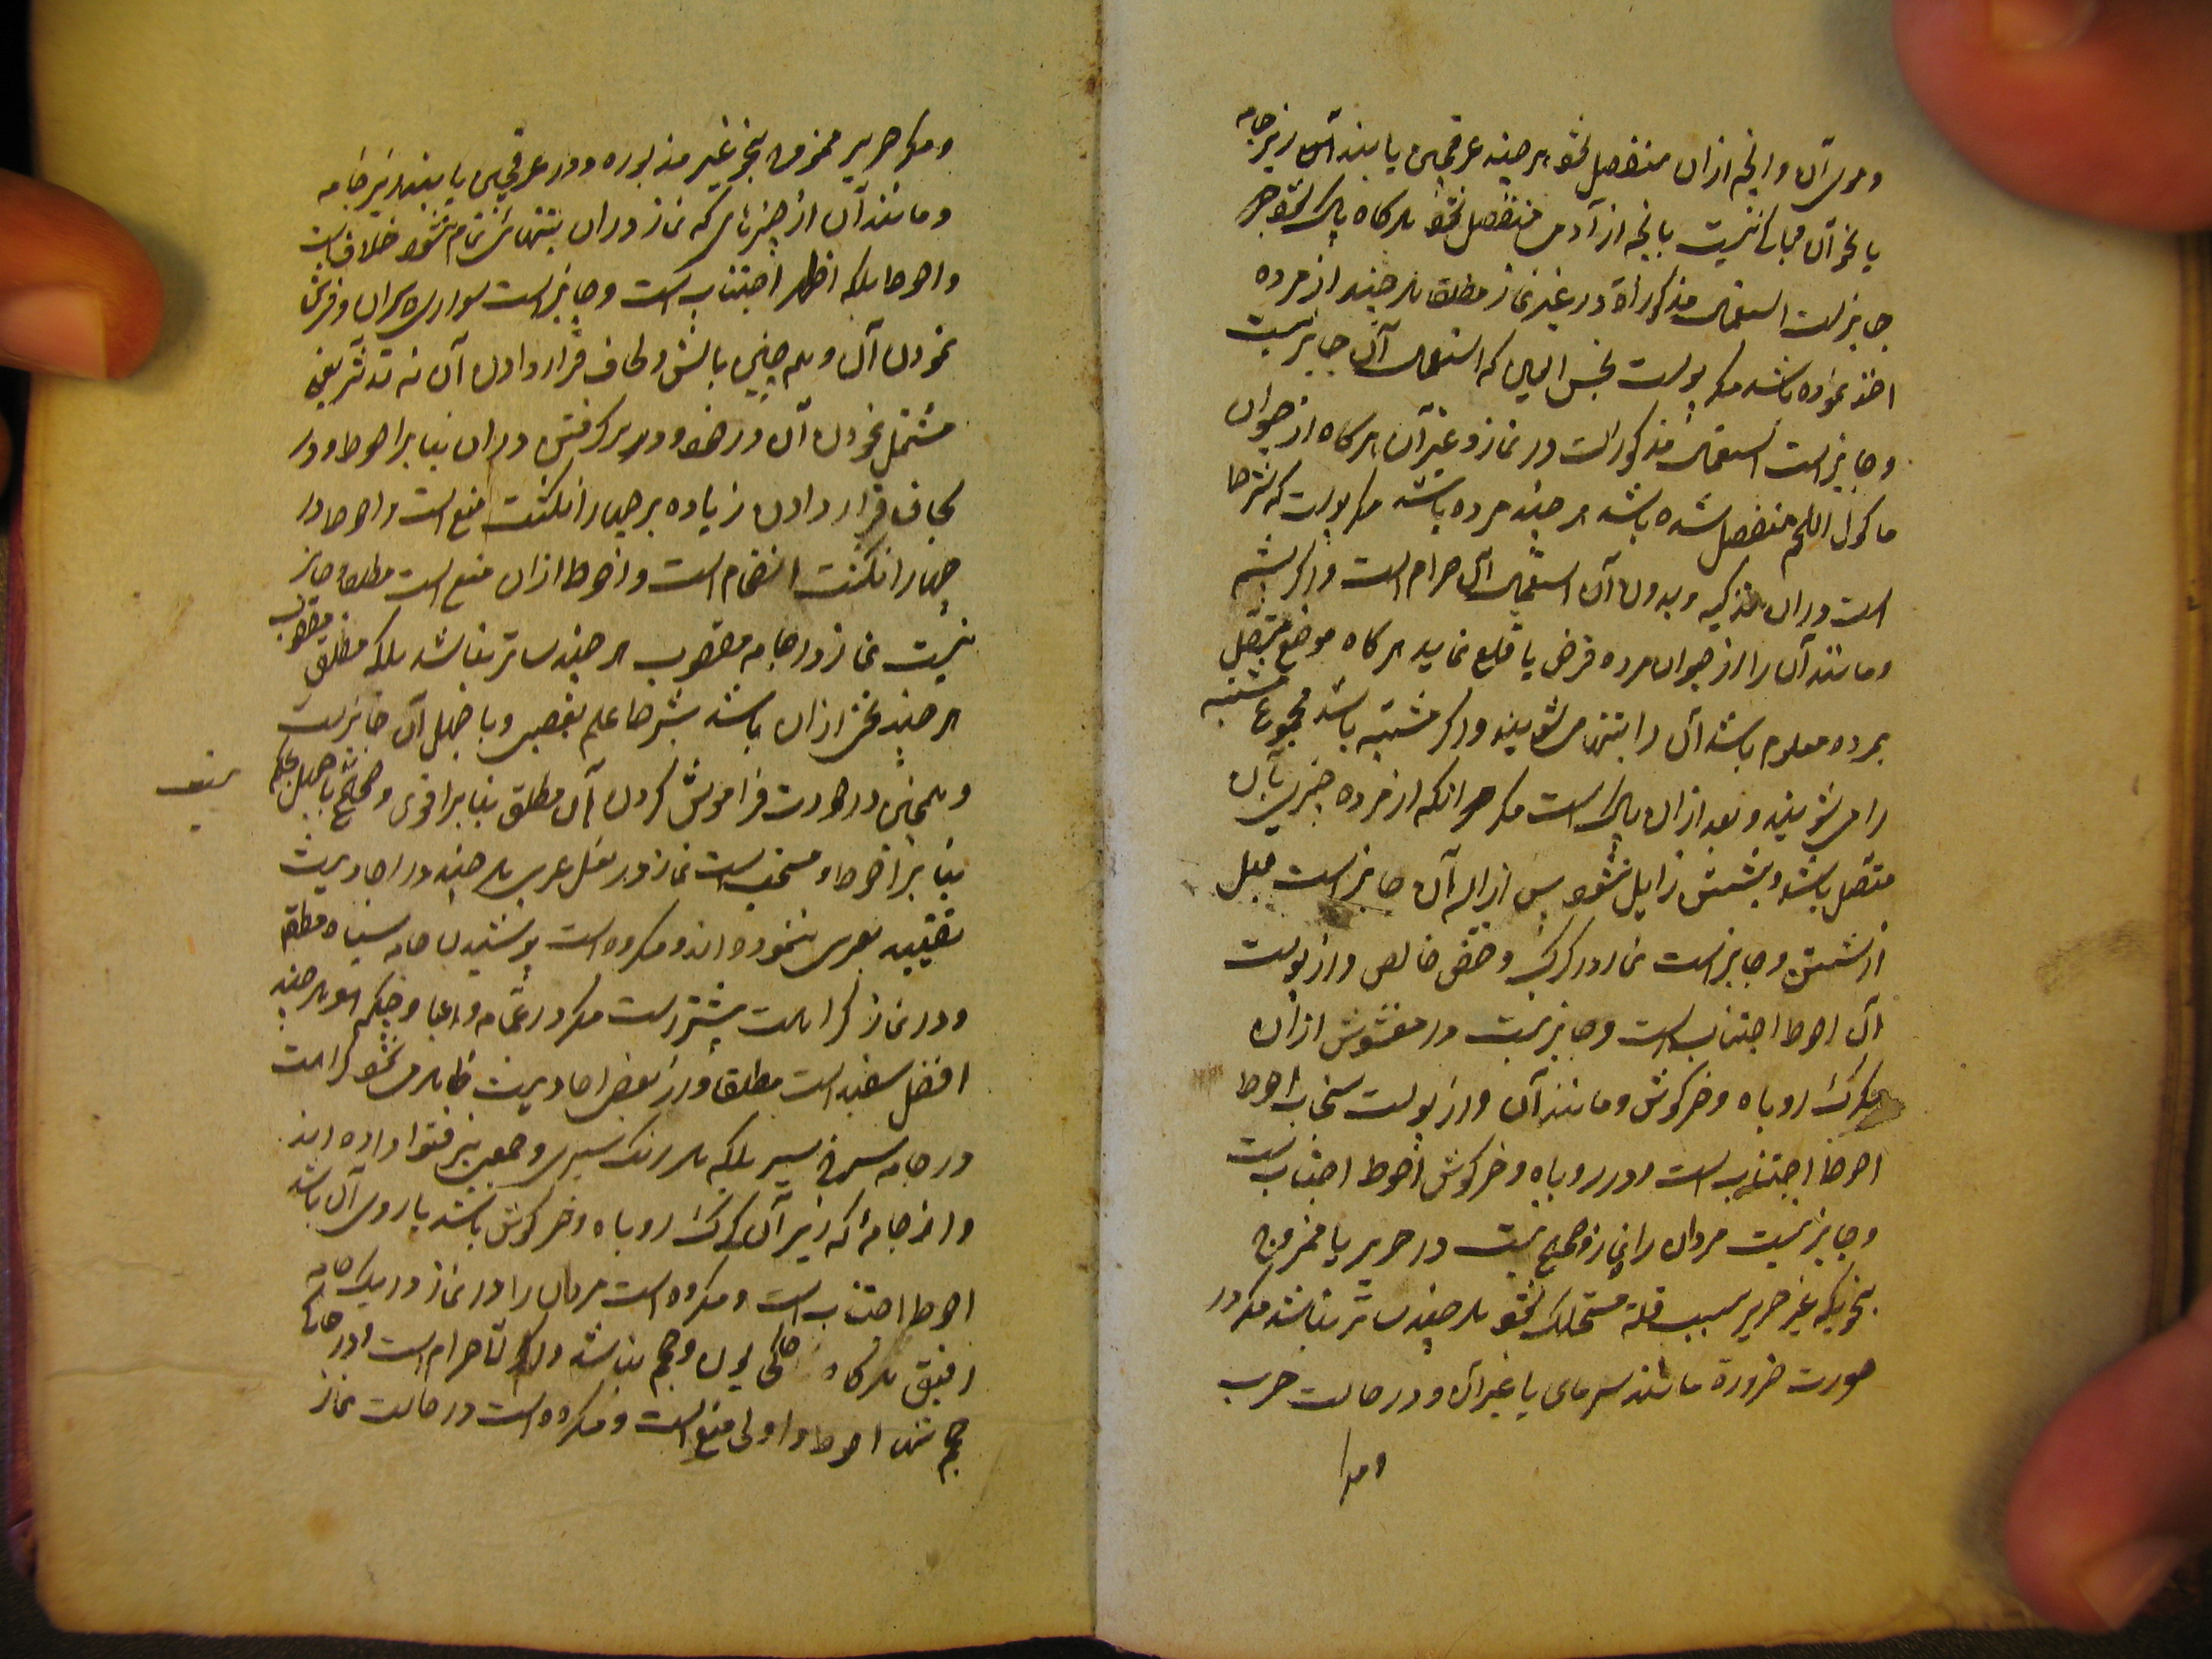 وموی آن وانچه ازان منفصل شود هر چند عرقچین یا بند آن زیر جامه
یا نحو آن باک نیست بانچه از آدمی منفصل شود هر گاه پاک شود و
جایز است استعمال مذکورات در غیر نماز مطلقا هر چند از مرده
اخذ نموده باشد مگر پوست نجس العین که استعمال آن جایز نیست
و جایز است استعمال مذکورات در نماز و غیر آن هر گاه از حیوان
ماکول اللحم منفصل شده باشد هر چند مرده باشد مگر پوست که شرط
است دران تذکیه و بدون آن استعمال آن حرام است و اگر پشم
ومانند آن را از حیوان مرده قرض یا قلع نماید هر گاه موضع متصل
بمرده معلوم باشد آن را بتنهای میشویند و اگر مشتبه باشد مجموع مشتبه
را میشویند و بعد ازان پاک است مگر انکه از مرده چیزی بآن
متصل باشد و بشستن زایل نشود پس ازاله آن جایز است قبل
از شستن و جایز است نماز در کرک و خز خالص و از پوست
آن احوط اجتناب است و جایز نیست در مغشوش ازان
بکرک روباه و خرکوش و مانند آن و از پوست سنجاب احوط
احوط اجتناب است و در روباه و خرکوش احوط اجتناب است
و جایز نیست مردان را نماز و صحیح نیست در حریر یا ممزوج
بنحویکه غیر حریر بسبب قلة مستهلک شود هر چند ساتر نباشد مگر در
صورت ضرورة مانند سرمای یا غیر آن و در حالت حرب
ومگر
ومگر حریر ممزوج بنحو غیر مذبوره و در عرقچین یا بند زیر جامه
ومانند آن از چیزهای که نماز دران بتنهای تمام نشود خلاف است
واحوط بلکه اظهر اجتناب است و جایز است سواری بران و فرش
نمودن آن و هم چنین بالش و لحاف قرار دادن آن نه تدثر یعنی
مشتمل نمودن آن در خود و در بر کرفتن دران بنا بر احوط و در
لحاف قرار دادن زیاده بر چهار انکشت منع است و احوط در
چهار انکشت انضمام است و احوط ازان منع است مطلقا و جایز
نیست نماز در جامه مغصوب هر چند ساتر نباشد بلکه مطلق مغصوب
هر چند نخی ازان باشد بشرط علم بغصب و با جهل آن جایز است
و همچنین در صورت فراموش کردن آن مطلق بنا بر اقوی و صحیح با جهل بحکم
بنا بر احوط و مستحب است نماز در نعل عربی هر چند در احادیث
تقیید بعربی ننموده اند و مکروه است پوشیدن جامه سیاه مطلقا
و در نماز کراهت بیشتر است مگر در عمامه و عبا و چکمه هر چند
افضل سفید است مطلقا و از بعض احادیث ظاهر میشود کراهت
در جامه سرخ سیر بلکه هر رنک سیری و جمعی نیز فتوا داده اند
و از جامه که زیر آن کرک روباه و خرکوش باشد یا روی آن باشد
احوط اجتناب است و مکروه است مردان را در نماز در یک جامه
رقیق هر گاه حاکی لون و حجم نباشد و الا حرام است و در حاکی
حجم تنها احوط و اولی منع است و مکروه است در حالت نماز